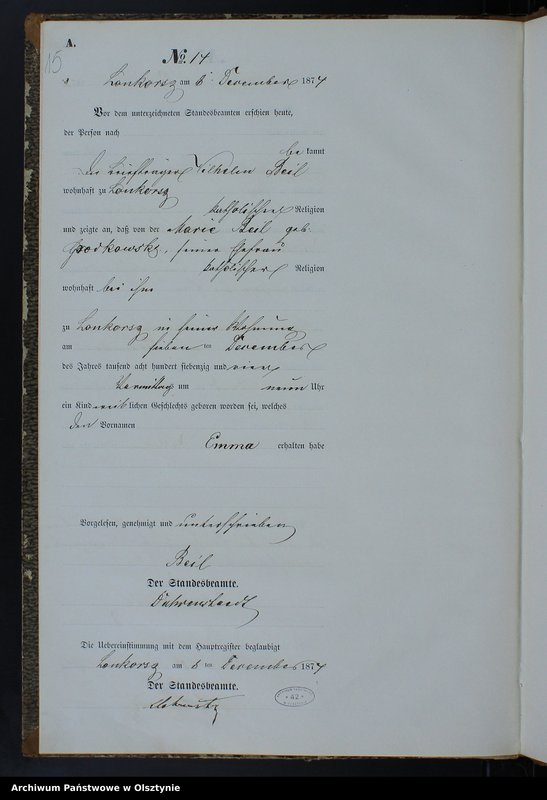 A.
15
No. 14
Lonkorsz am 8 December 1874
Vor dem unterzeichneten Standesbeamten erschien heute,
der Person nach
be kannt
der Briefträger Wilhelm Beil
wohnhaft zu Lonkorsz
katholischer Religion
und zeigte an, daß von der Marie Beil geb.
seiner Ehefrau
katholischer Religion
wohnhaft bei ihm
zu Lonkorsz in seiner Wohnung
am sieben ten December
des Jahres tausend acht hundert siebenzig und vier
Vormittags um neun Uhr
ein Kind weib lichen Geschlechts geboren worden sei, welches
den Vornamen
Emma erhalten habe
Vorgelesen, genehmigt und unterschrieben
Beil
Der Standesbeamte.
Die Uebereinstimmung mit dem Hauptregister beglaubigt
Lonkorsz am 8 ten December 1874
Der Standesbeamte.
42
Archiwum Państwowe w Olsztynie